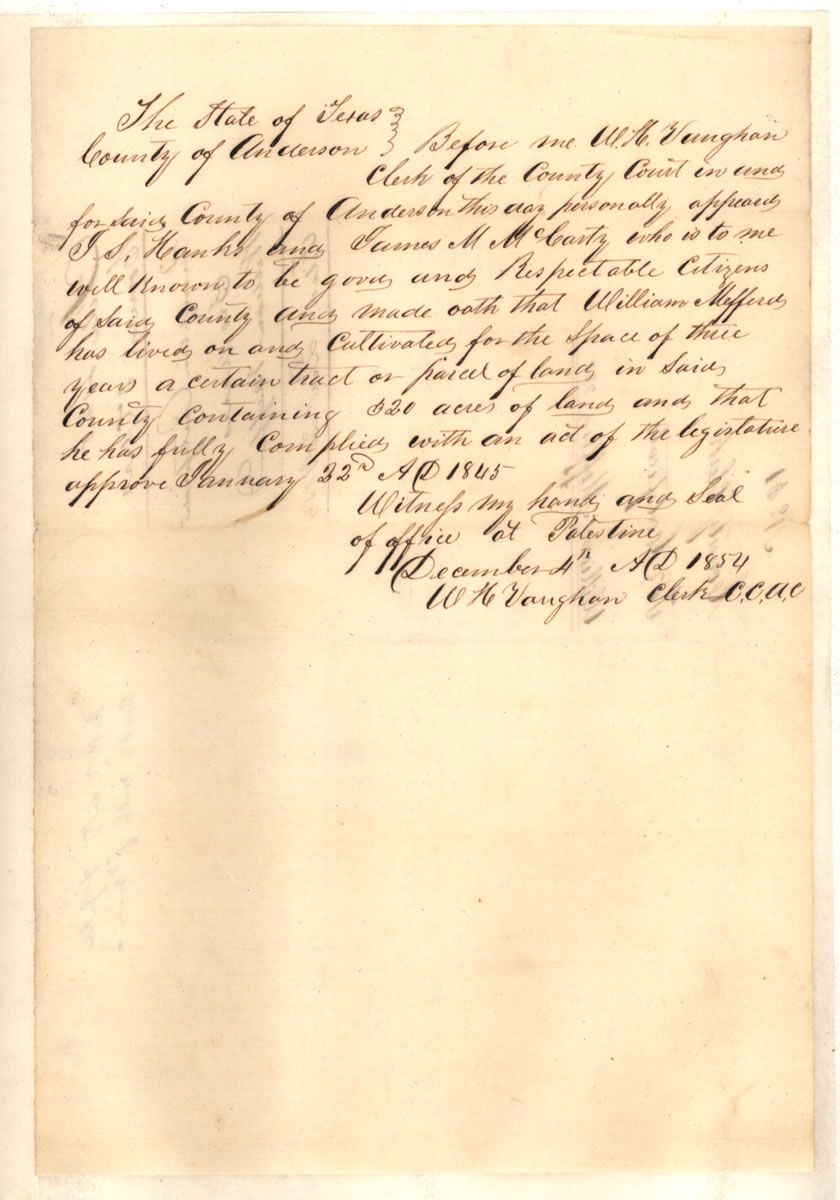 The State of Texas }
County of Anderson } Before me W. H. Vaughan
Clerk of the County Court in and
for Said County of Anderson this day personally appeard
J. S. Hanks and James M McCarty who is to me
well Known to be good and Respectable Citizens
of Said County and made oath that William Mefferd
has lived on and Cultivated for the Space of three
years a certain tract or parcel of land in Said
County Containing 320 acres of land and that
he has fully Complied with an act of the legistature
approve January 22d AD 1845
Witness my hand and Seal
of office at Palestine
December 4th AD 1854
W H Vaughan Clerk C.C.A.C